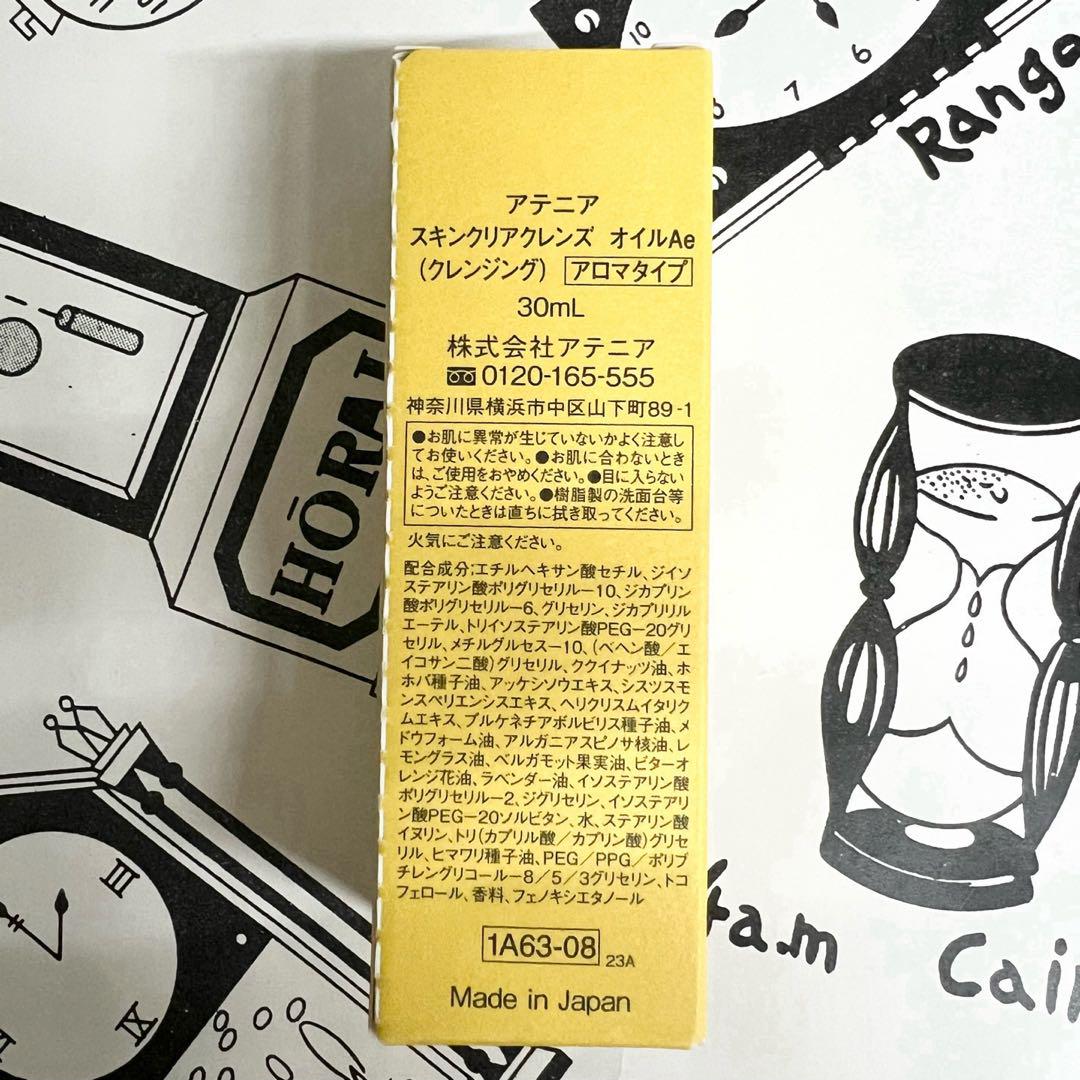 アテニア
スキンクリアクレンズ オイルAe
(クレンジング) アロマタイプ
30mL
株式会社アテニア
0120-165-555
神奈川県横浜市中区山下町89-1
●お肌に異常が生じていないかよく注意し
てお使いください。●お肌に合わないとき
は、ご使用をおやめください。●目に入らない
ようご注意ください。●樹脂製の洗面台等
についたときは直ちに拭き取ってください。
火気にご注意ください。
配合成分;エチルヘキサン酸セチル、ジイソ
ステアリン酸ポリグリセリルー10、ジカプリン
酸ポリグリセリルー6、グリセリン、ジカプリリル
エーテル、トリイソステアリン酸PEG-20グリ
セリル、メチルグルセスー10、(ベヘン酸/エ
イコサン二酸)グリセリル、ククイナッツ油、ホ
ホバ種子油、アッケシソウエキス、シスツスモ
ンスペリエンシスエキス、ヘリクリスムイタリク
ムエキス、プルケネチアボルビリス種子油、メ
ドウフォーム油、アルガニアスピノサ核油、レ
モングラス油、ベルガモット果実油、ビターオ
レンジ花油、ラベンダー油、イソステアリン酸
ポリグリセリルー2、ジグリセリン、イソステアリ
ン酸PEG-20ソルビタン、水、ステアリン酸
イヌリン、トリ(カプリル酸/カプリン酸)グリセ
リル、ヒマワリ種子油、PEG/PPG/ポリブ
チレングリコールー8/5/3グリセリン、トコ
フェロール、香料、フェノキシエタノール
1A63-08 23A
Made in Japan
HŌRAI
10
7
6
8
9
III
IX
a.m